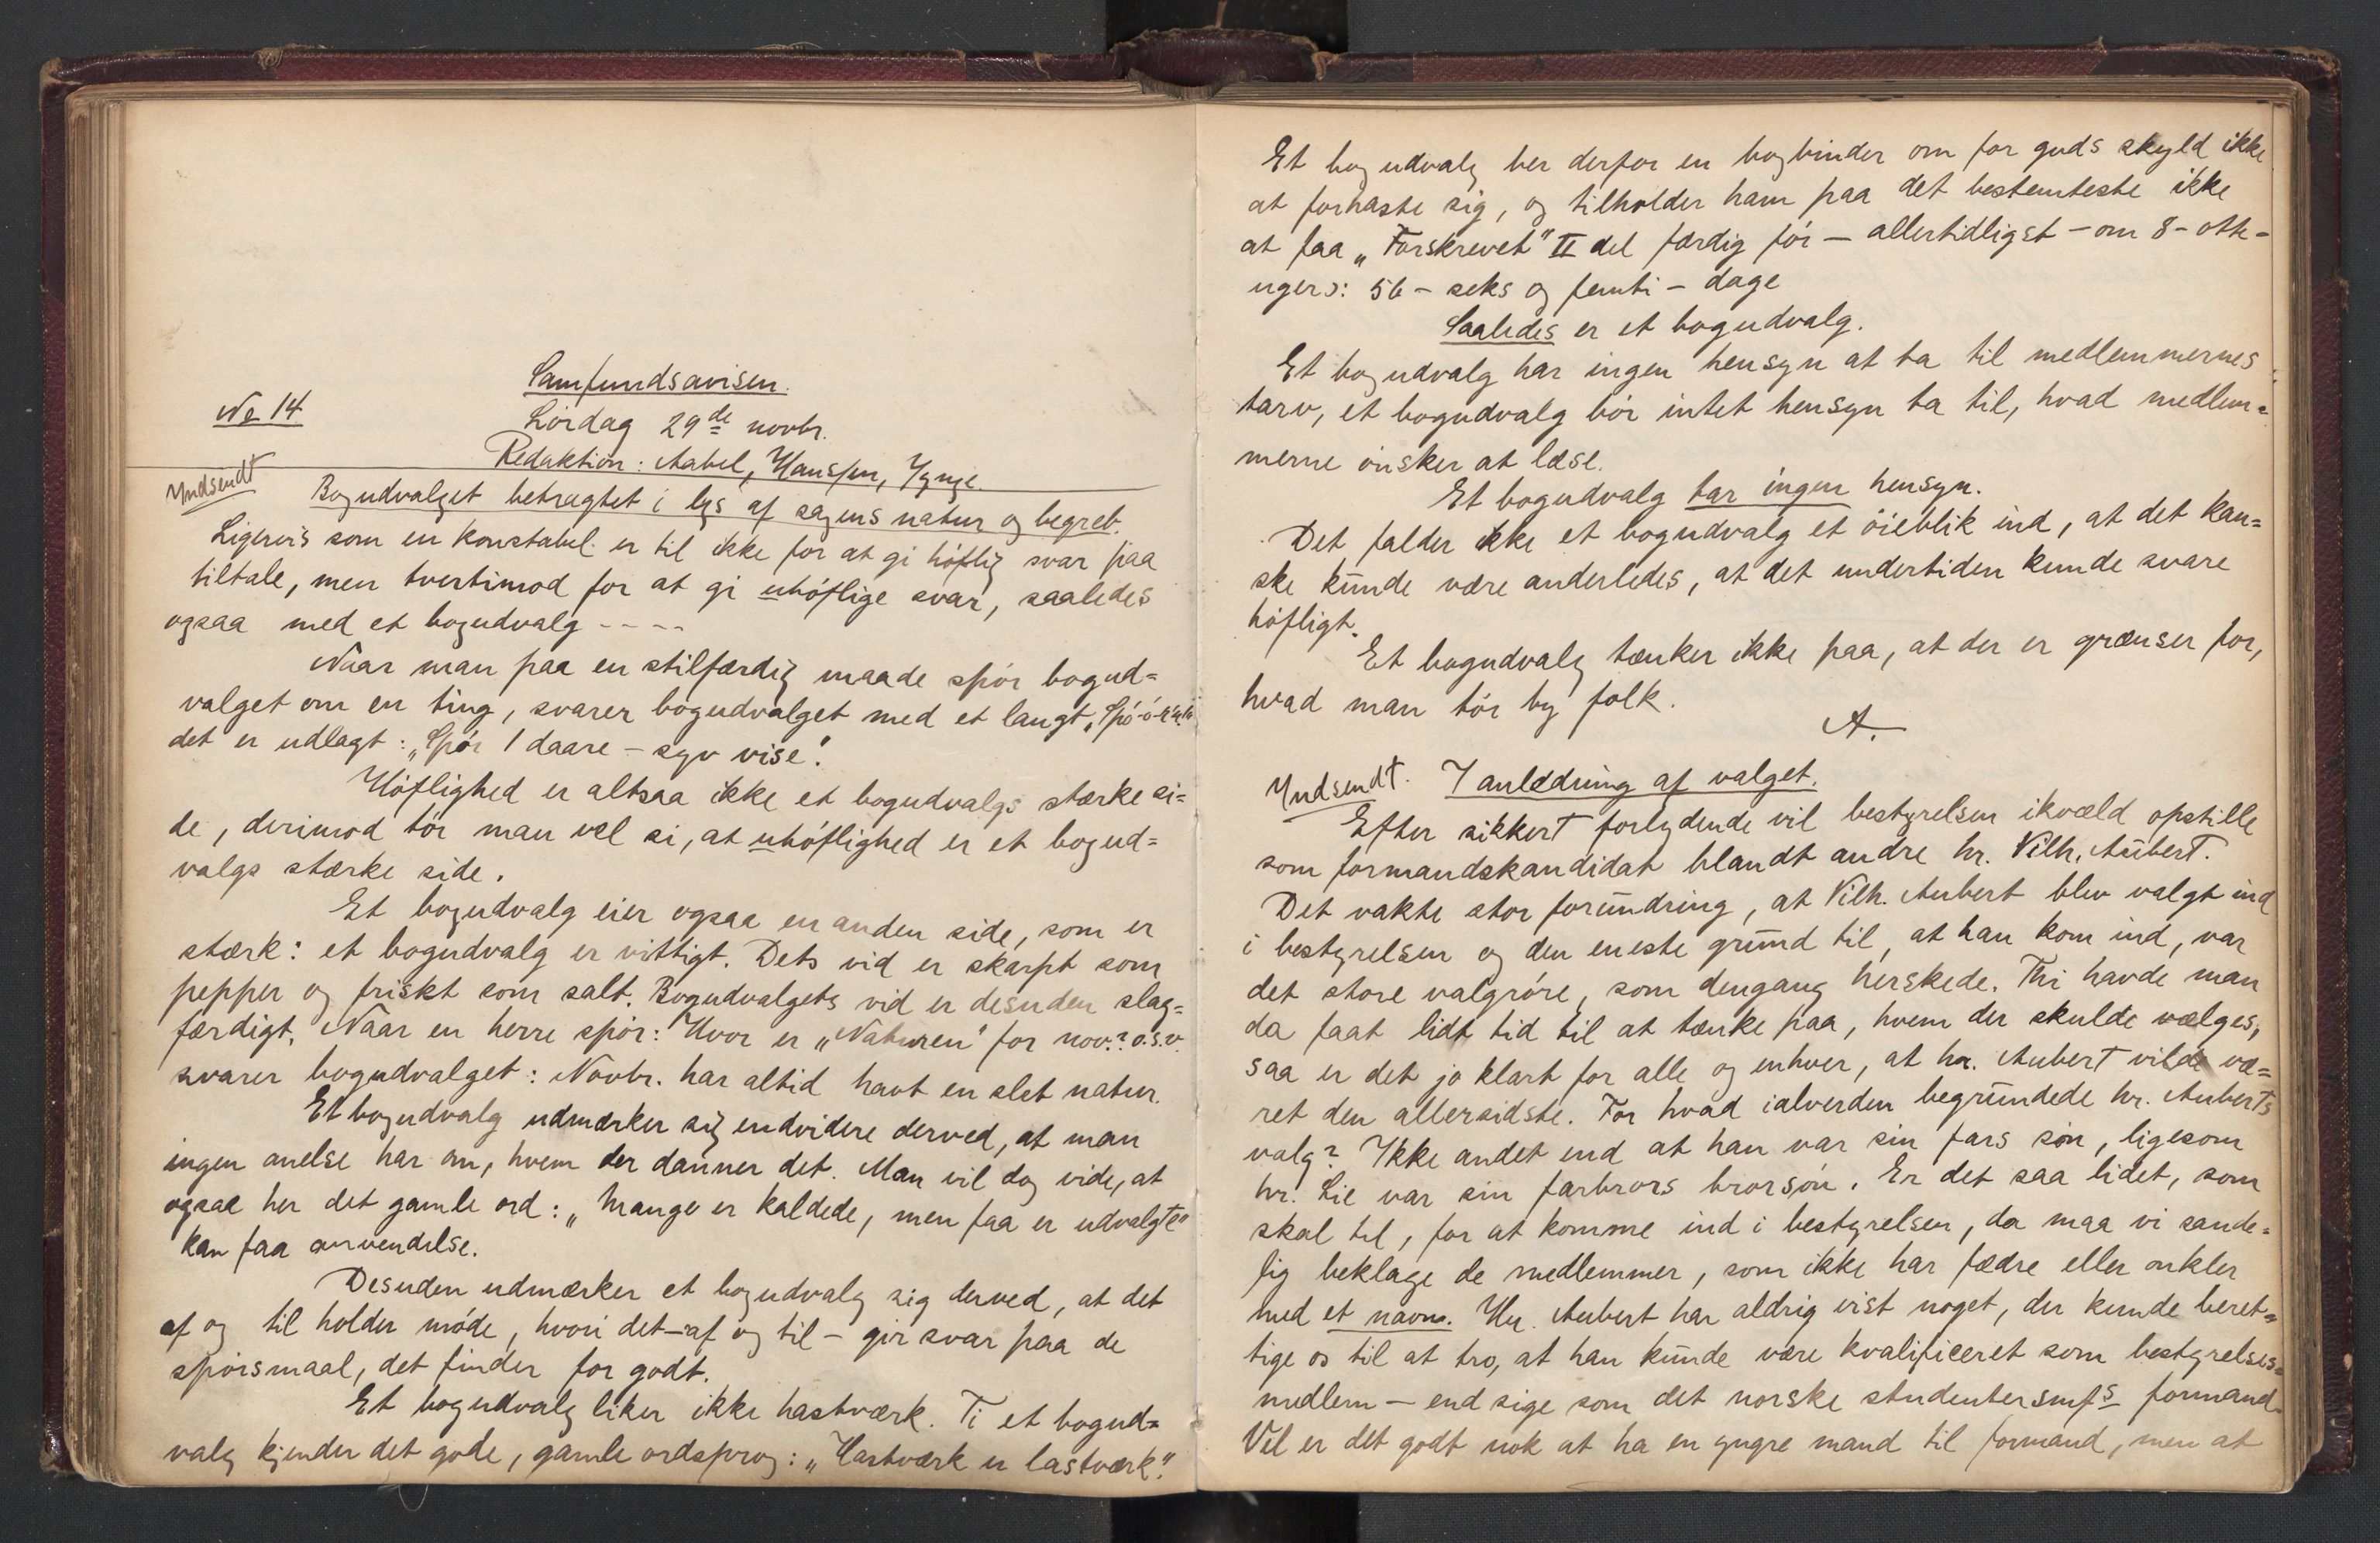 Samfundsavisen.
No 14.
Lördag 29de novbr.
Redaktion: Aabel, Hansen, Ynge.
Indsendt
Bogudvalget betragtet i lys af sagens natur og begreb.
Ligevis som en konstabel er til ikke for at gi höflig svar paa
tiltale, men tvertimod for at gi uhöflige svar, saaledes
ogsaa med et bogudvalg ----
Naar man paa en stilfærdig maade spör bogud=
valget om en ting, svarer bogudvalget med et langt
det er udlagt: „Spör 1 daare – syv vise".
Höflighed er altsaa ikke et bogudvalgs stærke si=
de, derimod tör man vel si, at uhöflighed er et bogud=
valgs stærke side.
Et bogudvalg eier ogsaa en anden side, som er
stærk: et bogudvalg er vittigt. Dets vid er skarpt som
pepper og friskt som salt. Bogudvalgets vid er desuden slag=
færdigt. Naar en herre spör: Hvor er „Naturen" for nov.? o.s.v.
svarer bogudvalget: Novbr. har altid havt en slet natur.
Et bogudvalg udmærker sig endvidere derved, at man
ingen anelse har om, hvem der danner det. Man vil dog vide, at
ogsaa her det gamle ord: „Mange er kaldede, men faa er udvalgte"
kan faa anvendelse.
Desuden udmærker et bogudvalg sig derved, at det
af og til holder möde, hvori det – af og til – gir svar paa de
spörsmaal, det finder for godt.
Et bogudvalg liker ikke hastværk. Ti et bogud=
valg kjender det gode, gamle ordsprog: „Hastværk er lastværk".
Et bogudvalg ber derfor en bogbinder om for guds skyld ikke
at forhaste sig, og tilholder ham paa det bestemteste ikke
at faa „Forskrevet" II del færdig för – allertidligst – om 8 – otte –
uger ɔ: 56 – seks og femti – dage
Saaledes er et bogudvalg.
Et bogudvalg har ingen hensyn at ta til medlemmernes
tarv, et bogudvalg bör intet hensyn ta til, hvad medlem=
merne önsker at læse.
Et bogudvalg tar ingen hensyn.
Det falder ikke et bogudvalg et öieblik ind, at det kan=
ske kunde være anderledes, at det undertiden kunde svare
höfligt.
Et bogudvalg tænker ikke paa, at der er grænser for,
hvad man tör by folk.
A.
Indsendt. I anledning af valget.
Efter sikkert forlydende vil bestyrelsen ikvæld opstille
som formandskandidat blandt andre hr. Vilh. Aubert.
Det vakte stor forundring, at Vilh. Aubert blev valgt ind
i bestyrelsen og den eneste grund til, at han kom ind, var
det store valgröre, som dengang herskede. Thi havde man
da faat lidt tid til at tænke paa, hvem der skulde vælges,
saa er det jo klart for alle og enhver, at hr. Aubert vilde væ=
ret den allersidste. For hvad ialverden begrundede hr. Auberts
valg? Ikke andet end at han var sin fars sön, ligesom
hr. Lie var sin farbrors brorsön. Er det saa lidet, som
skal til, for at komme ind i bestyrelsen, da maa vi sande=
lig beklage de medlemmer, som ikke har fædre eller onkler
med et navn. Hr. Aubert har aldrig vist noget, der kunde beret=
tige os til at tro, at han kunde være kvalificeret som bestyrelses=
medlem – end sige som det norske studentersmfs formand.
Vel er det godt nok at ha en yngre mand til formand, men at